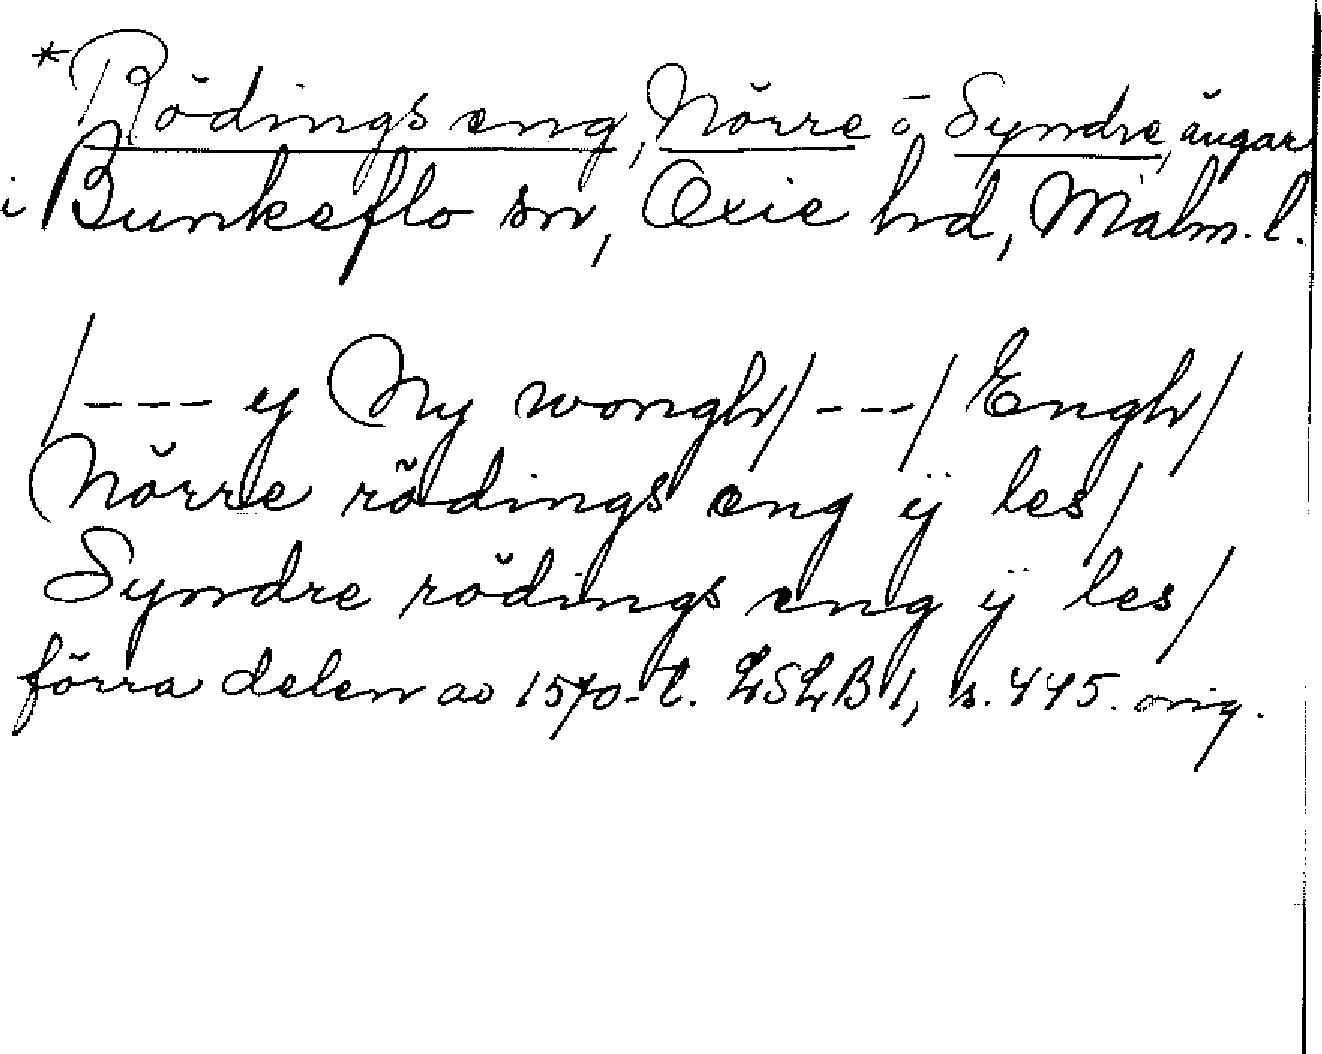 *Rödings eng, Nörre o Syndre, ängar
i Bunkeflo sn, Oxie hd, Malm. l.
/--- y Ny wongh/---/ Engh/
Nörre rödings eng ij les/
Syndre rödings eng ij les/
förra delen av 1570-t. LSLB 1, s. 445. orig.